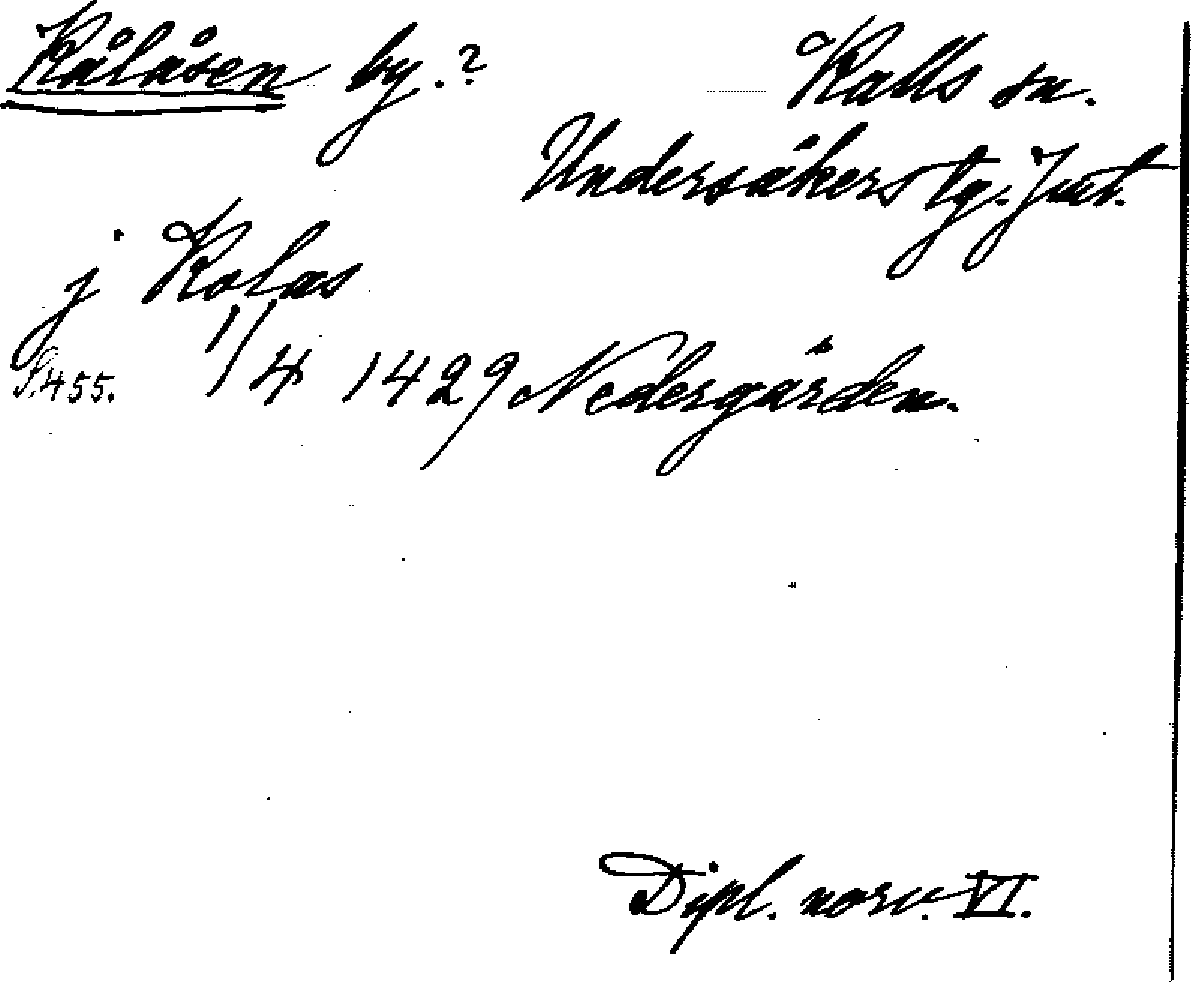 Kålåsen by.? Kalls sn.
Undersåkers tg. Jmt.
j Kolas
S. 455. 1/4 1429 Nedergården.
Dipl. norv. VI.